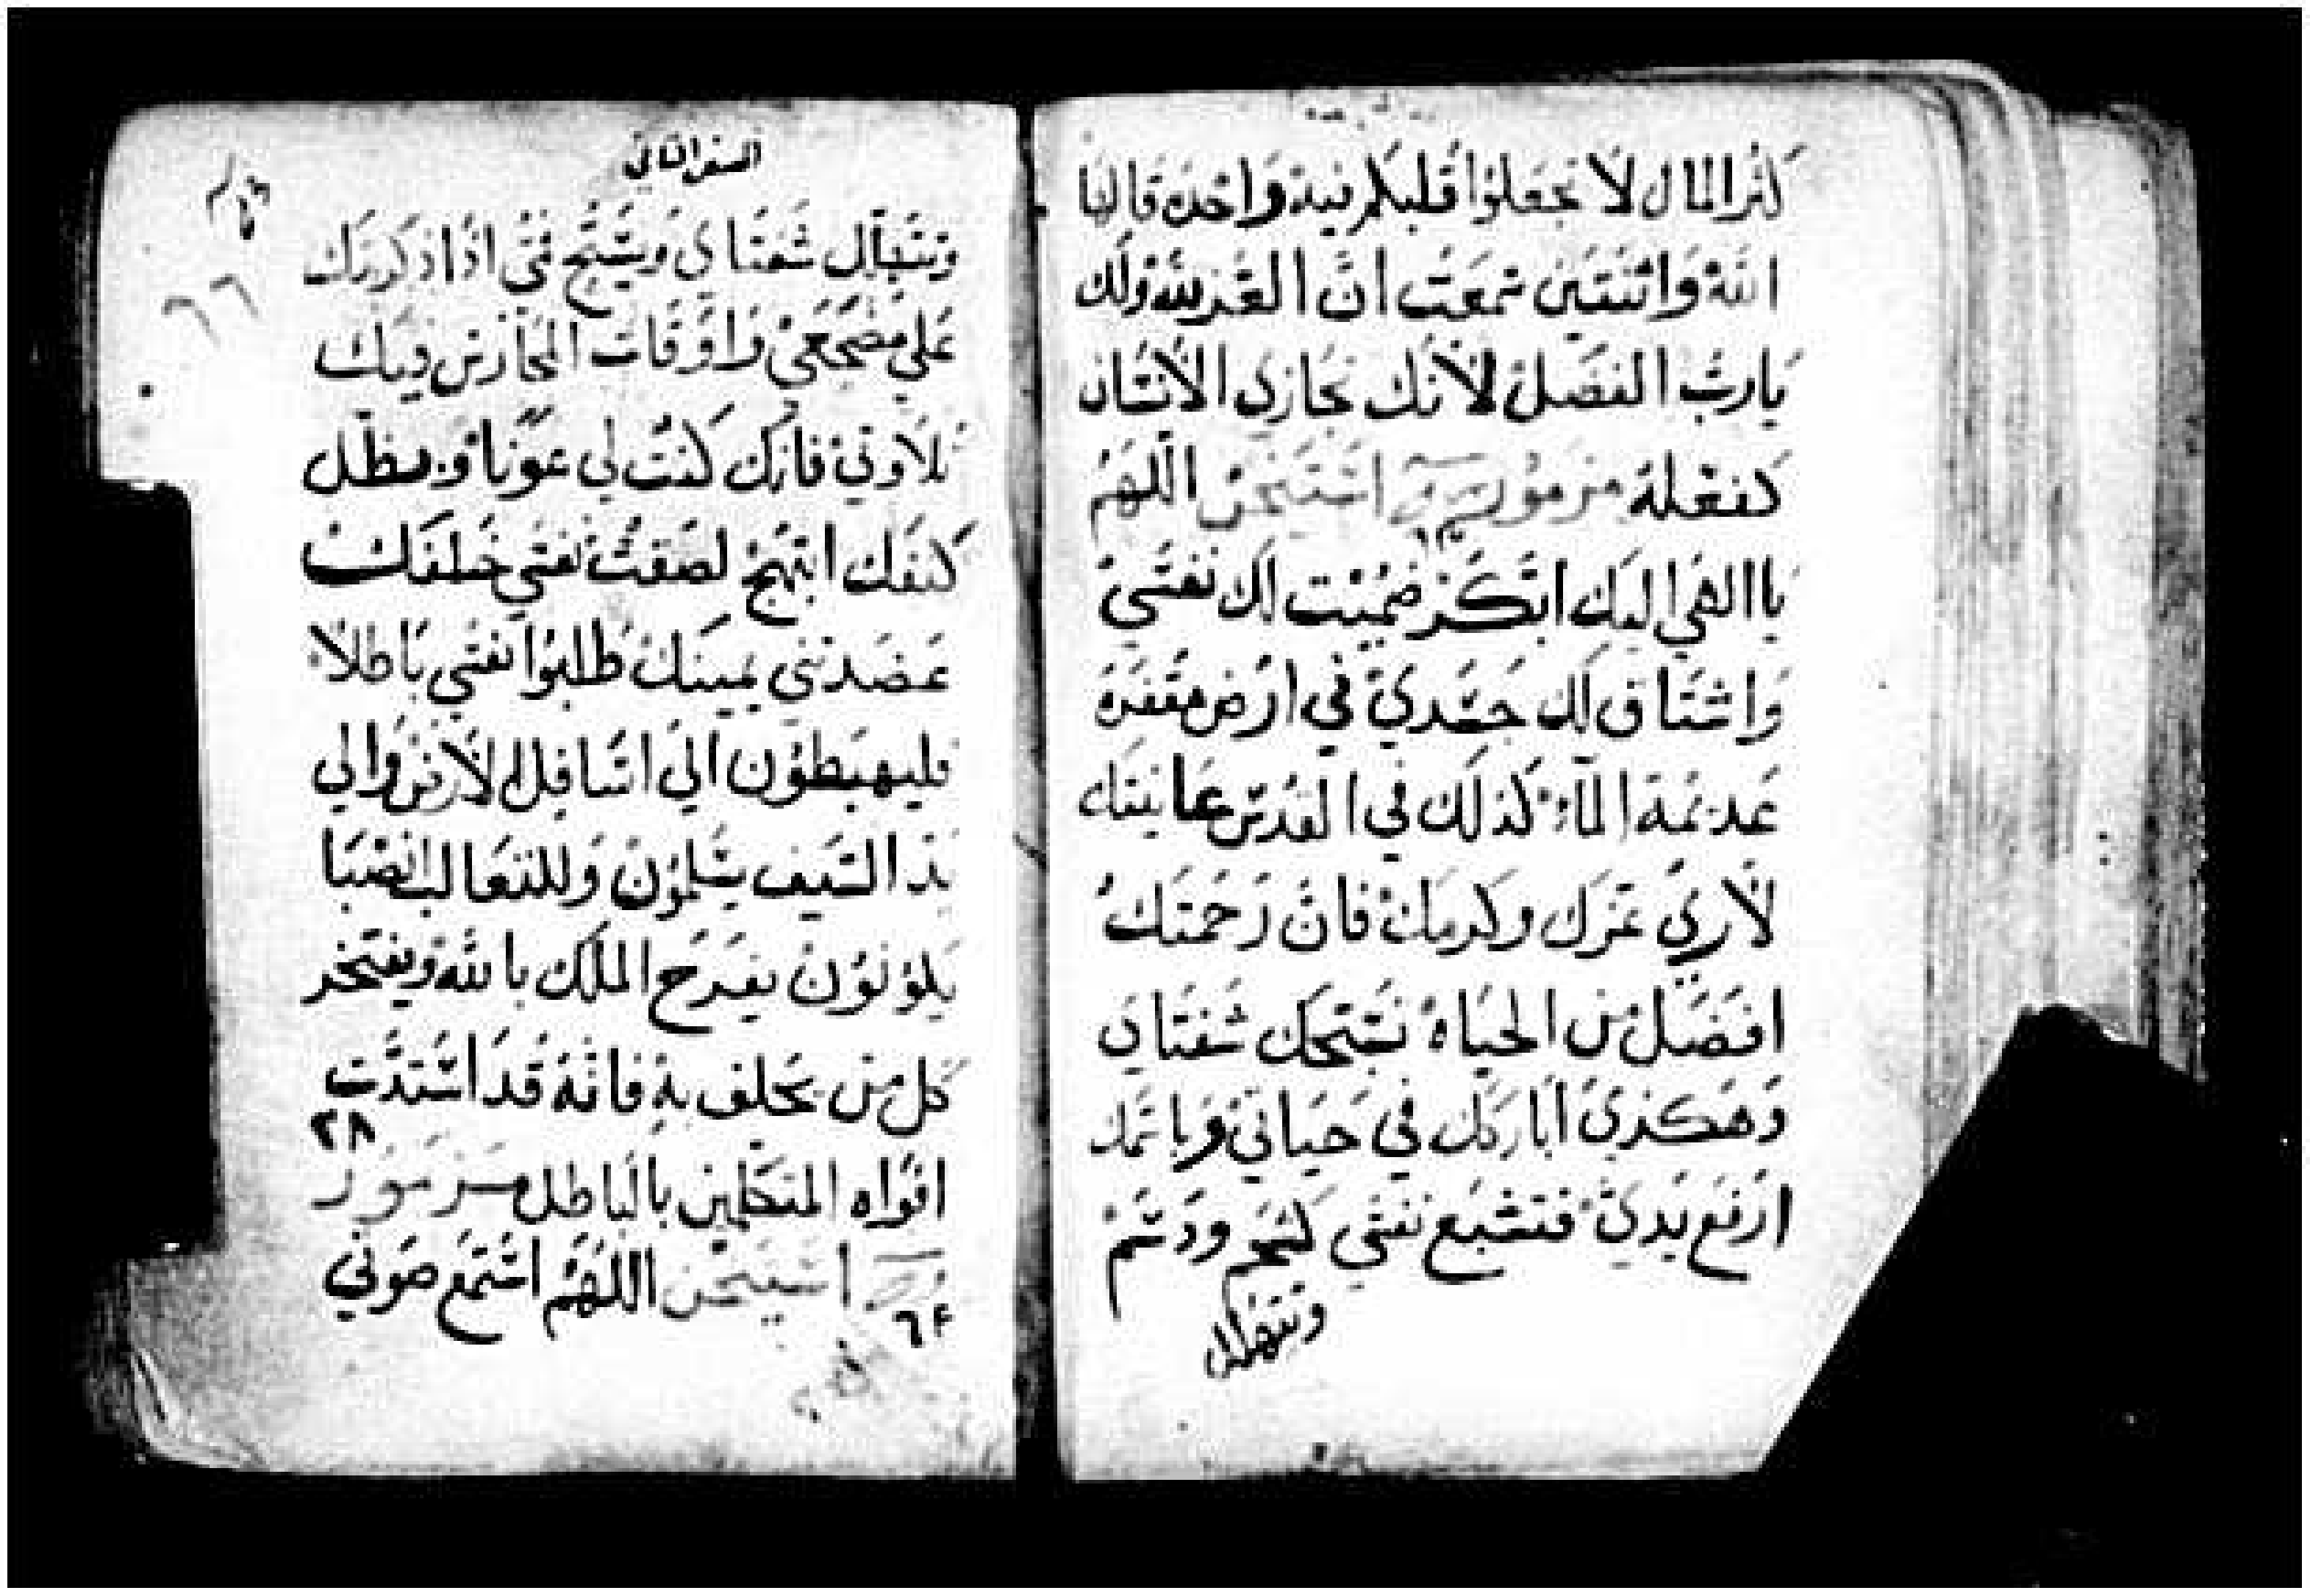 كثر المال لا تجعلوا قلبكم فيه واحده قالها
الله واثنتين سمعت ان العز لله ولك
يارب الفضل لانك تجازي الانسان
كفعله مزمور استيخن اللهم
٦٢
يا الهي اليك ابتكر ضميت لك نفسي
واشتاق لك جسدي في ارض مقفره
عديمة الماء كذلك في القدس عاينتك
لاري عزك وكرمك فان رحمتك
افضل من الحياة تسبحك شفتاي
وهكذي اباركك في حياتي وباسمك
ارفع يدي فتشبع نفسي كشحم ودسم
وتتهلل
السفر الثاني
٦٦
وتتهلل شفتاى ويسبح فمي اذا ذكرتك
علي مضجعي واوقات المحارس فيك
تلاوتي فانك كنت لي عونا وبظل
كنفك ابتهج لصقت نفسي خلفك
عضدتني يمينك طلبوا نفسي باطلا
فليهبطون الي اسافل الارض والي
يد السيف يسلمون وللثعالب انصبا
يكونون يفرح الملك بالله ويفتخر
كل من يحلف به فانه قد استدت
٢٨
افواه المتكلمين بالباطل مزمور
استيخن اللهم استمع صوتي
٦٤